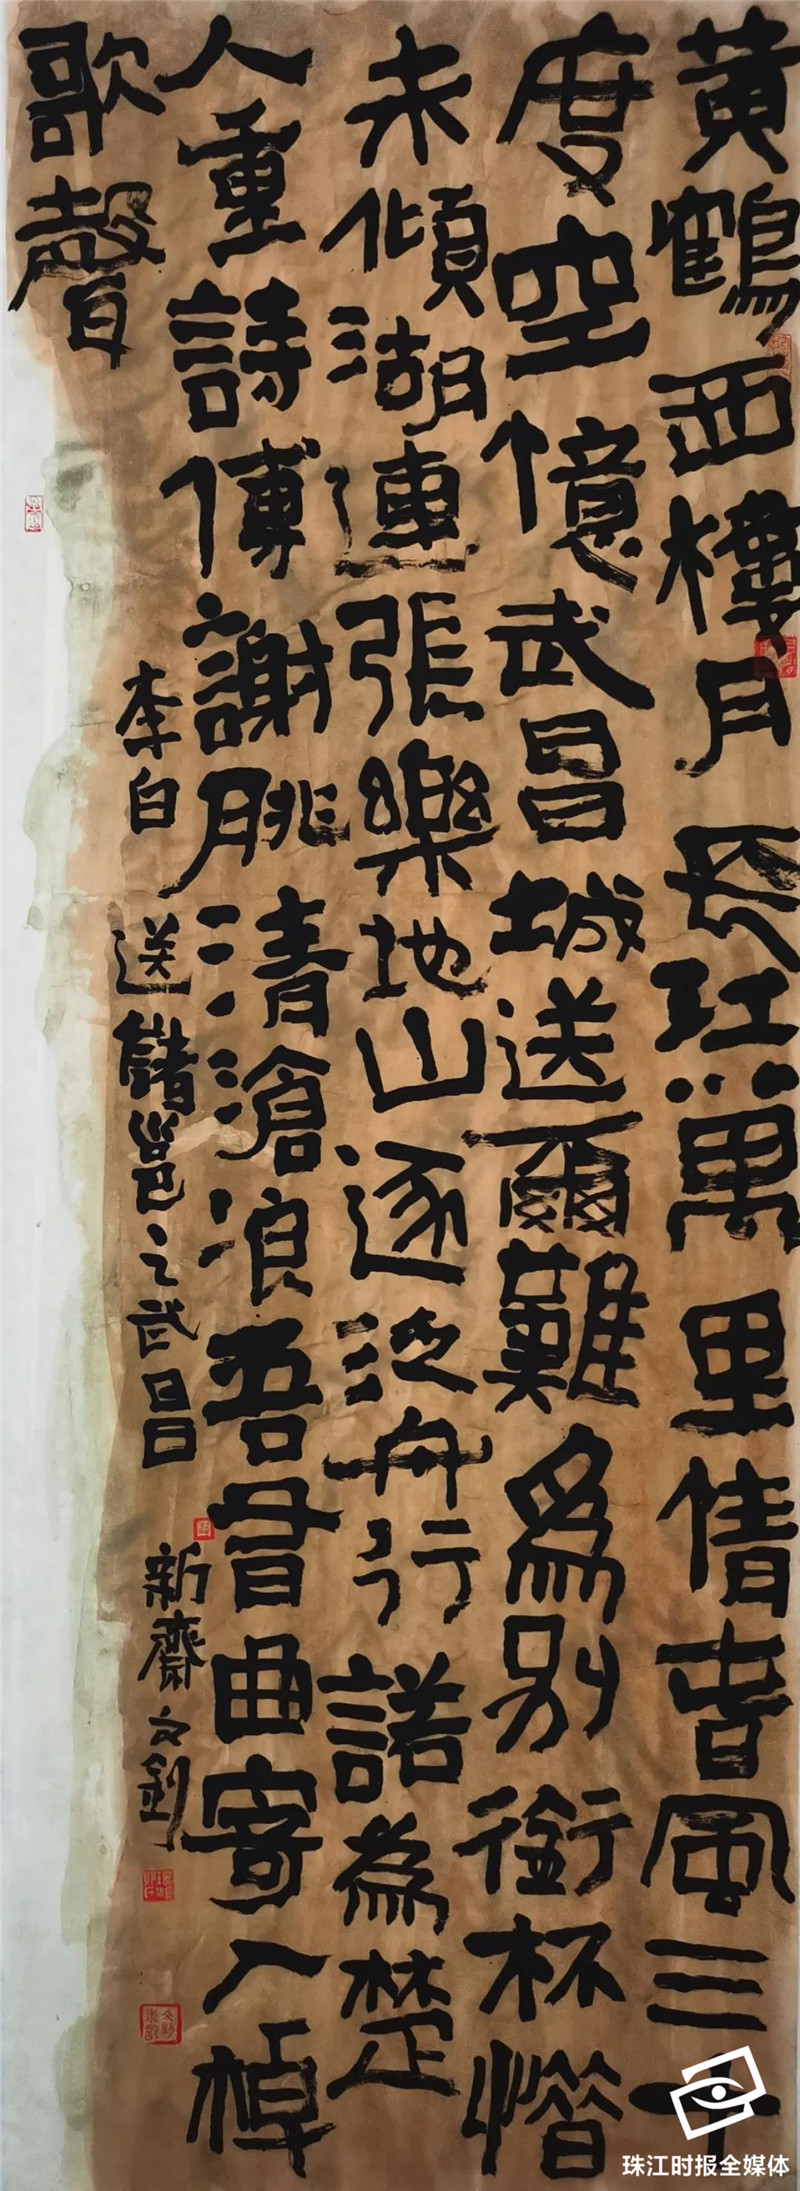 黄鶴西樓月長江萬里情春風三十
度空憶武昌城送爾難為別銜杯惜
未傾湖連張樂地山逐泛舟行諾為楚
人重詩傳謝朓清滄浪吾有曲寄入棹
歌聲
李白送儲邕之武昌 新齋文釗
珠江时报全媒体